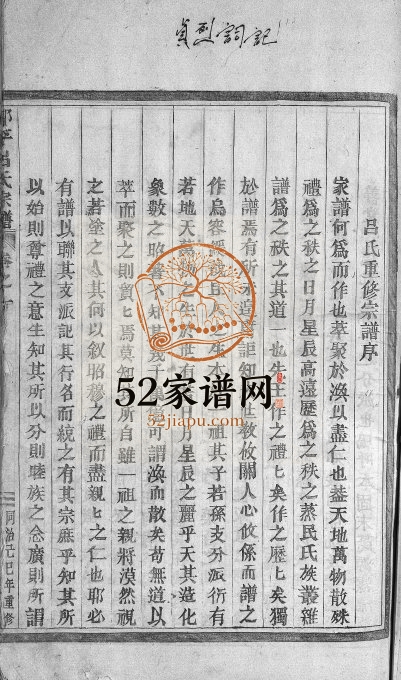 貞烈詞記
呂氏重修宗譜序
家譜何爲而作也萃聚於渙以盡仁也葢天地萬物散殊
禮爲之秩之日月星辰高遠歷爲之秩之蒸民氏族叢雜
譜爲之秩之其道一也先王作之禮匕矣作之歷匕矣獨
於譜焉有所未 詎知 世敎攸關人心攸係而譜之
作烏容 生本 祖其子若孫支分派衍有
若地天 之生 世有 日月星辰之麗乎天其造化
象數之昭 不知其 可謂渙而散矣苟無道以
萃而聚之則貿匕焉莫知 所自雖一祖之親將漠然視
之若塗之人其何以叙昭穆之禮而盡親匕之仁也耶必
有譜以聯其支派記其行名而統之有其宗庶乎知其所
以始則尊禮之意生知其所以分則睦族之念廣則所謂
呂氏宗譜
同治己巳年重修
52家谱网
52jiapu.com